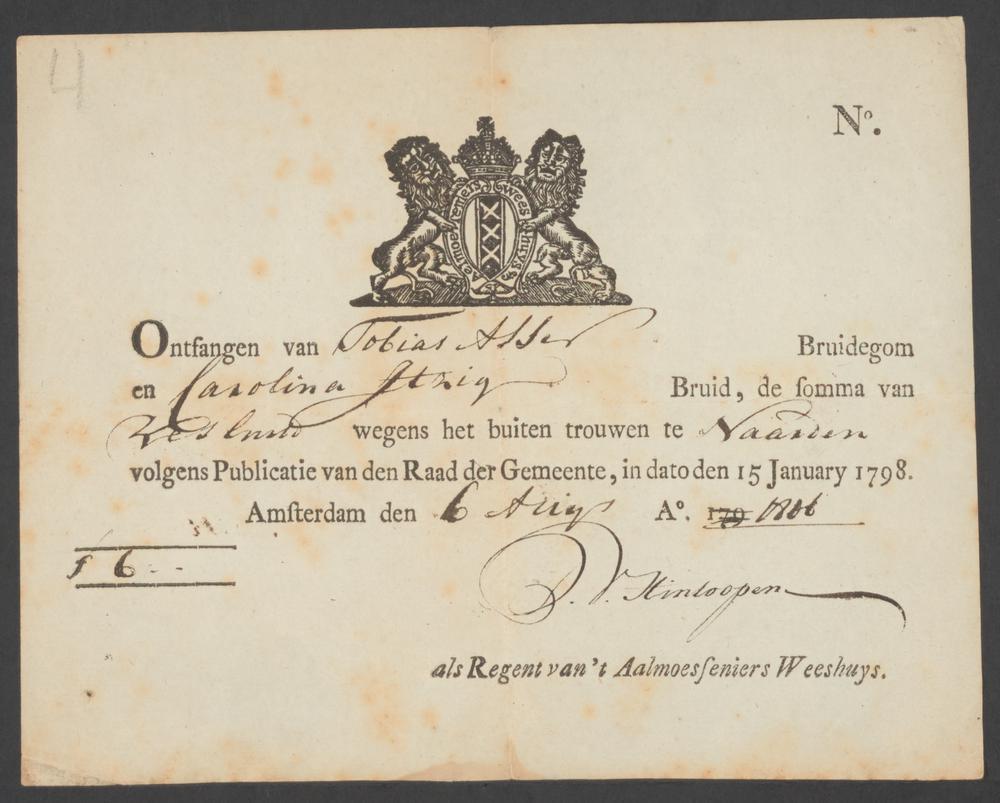 4
Nº.
Aelmoeseniers Weeshuys
Ontfangen van Tobias Asser Bruidegom
en Carolina Itzig Bruid, de somma van
Zes Guld wegens het buiten trouwen te Naarden
volgens Publicatie van den Raad der Gemeente, in dato den 15 January 1798.
Amsterdam den 6 Aug Aº. 179 1806
f 6 --
D. V. Hinloopen
als Regent van't Aalmoesseniers Weeshuys.